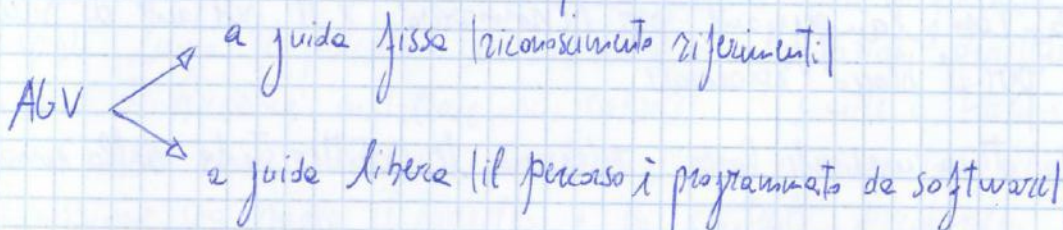 a guida fissa (riconoscimento riferimenti)
AGV
a guida libera (il percorso è programmato da software)